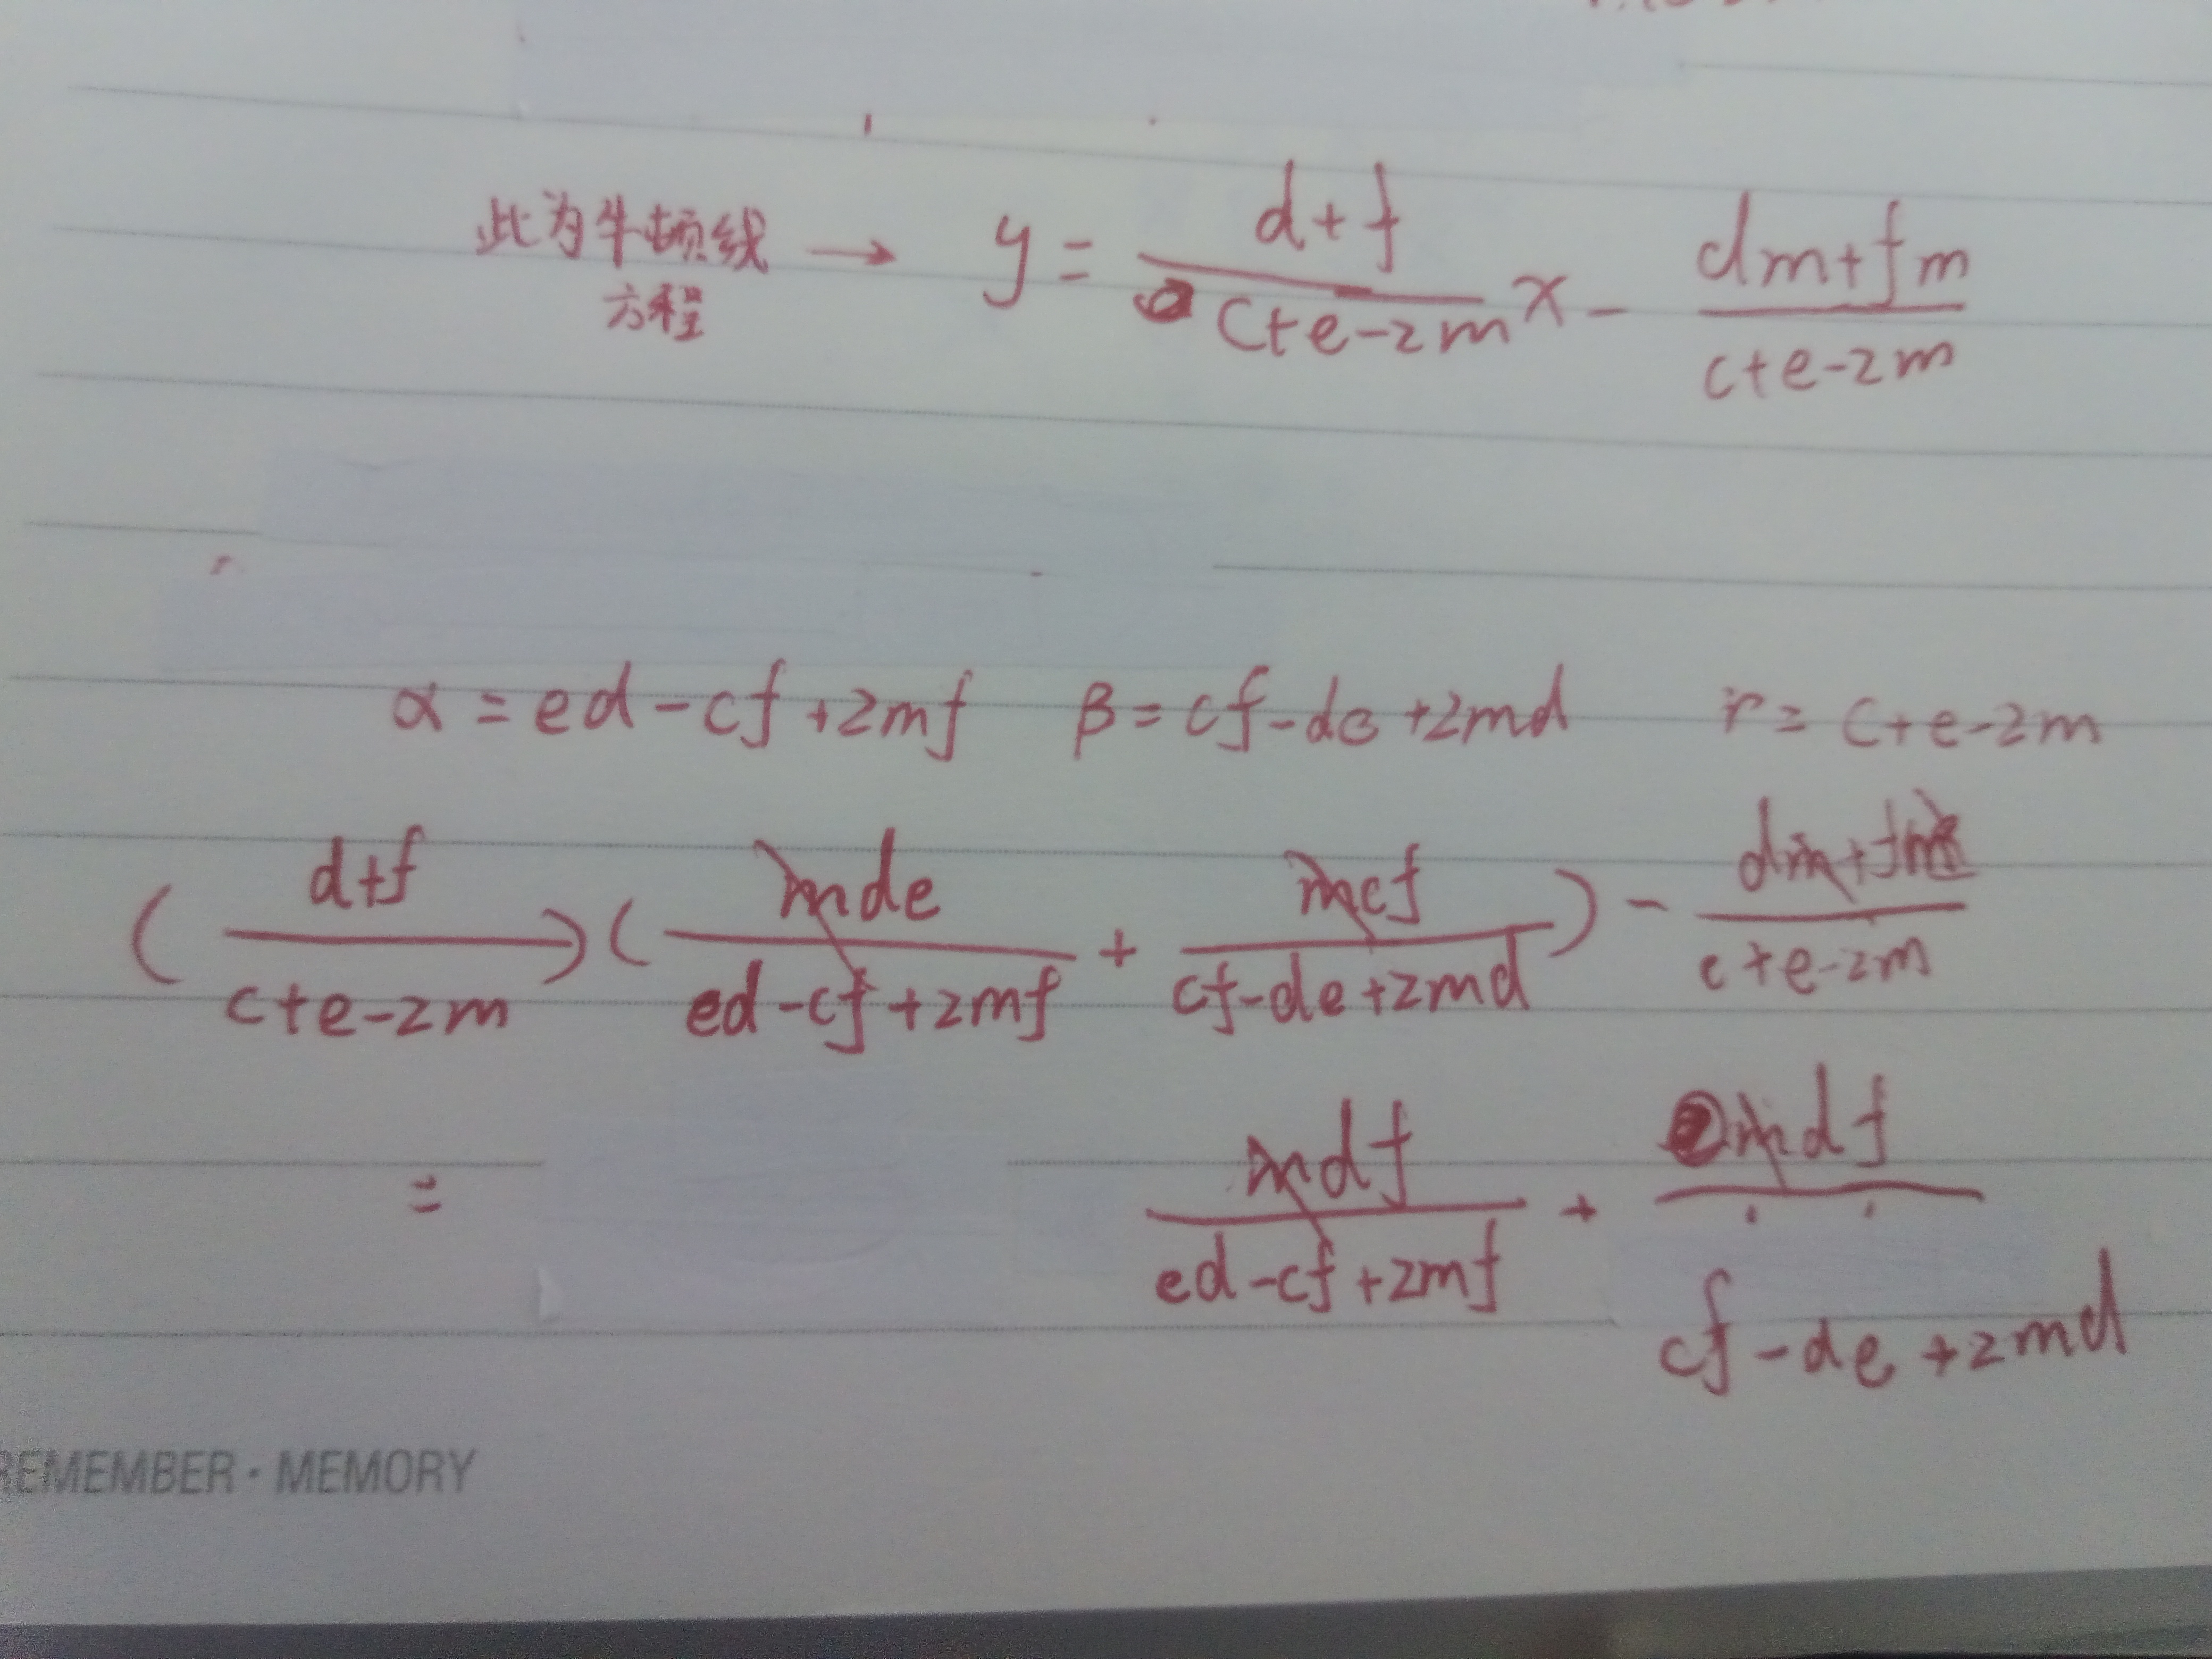 此为牛顿线 → y = \frac{d+f}{c+e-2m} x - \frac{dm+fm}{c+e-2m}
方程
α = ed-cf+2mf β = cf-de+2md r = c+e-2m
(\frac{d+f}{c+e-2m})(\frac{mde}{ed-cf+2mf} + \frac{mcf}{cf-de+2md}) - \frac{dm+fm}{c+e-2m}
= \frac{mdf}{ed-cf+2mf} + \frac{mdf}{cf-de+2md}
REMEMBER·MEMORY